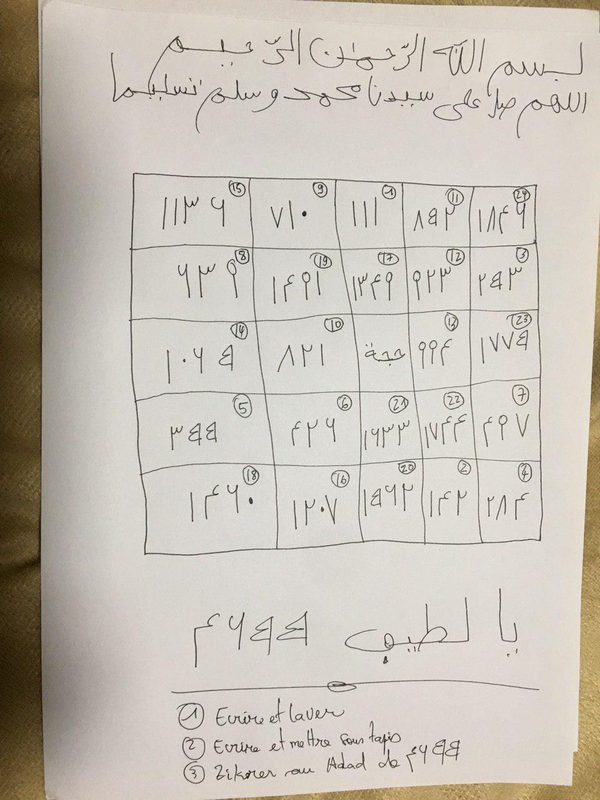 بسم الله الرّحمٰن الرّحيم
اللهم صل على سيدنا محمد وسلم تسليما
24 11 1 9 15
١٨٤٦ ٨٥٢ ١١١ ٧١٠ ١١٣٦
3 12 17 19 8
٢٥٣ ٩٢٣ ١٣٤٩ ١٤٩١ ٦٣٩
23 13 10 14
١٧٧٥ ٩٩٤ حجة ٨٢١ ١٠٦٥
7 22 21 6 5
٤٩٧ ١٧٤٤ ١٦٣٣ ٤٢٦ ٣٥٥
4 2 20 16 18
٢٨٤ ١٤٢ ١٥٦٢ ١٢٠٧ ١٤٦٠
يا لطيف ٤٦٥٥
1 Ecrire et laver
2 Ecrire et mettre sous tapis
3 Zikrer au Adad de ٤٦٥٥